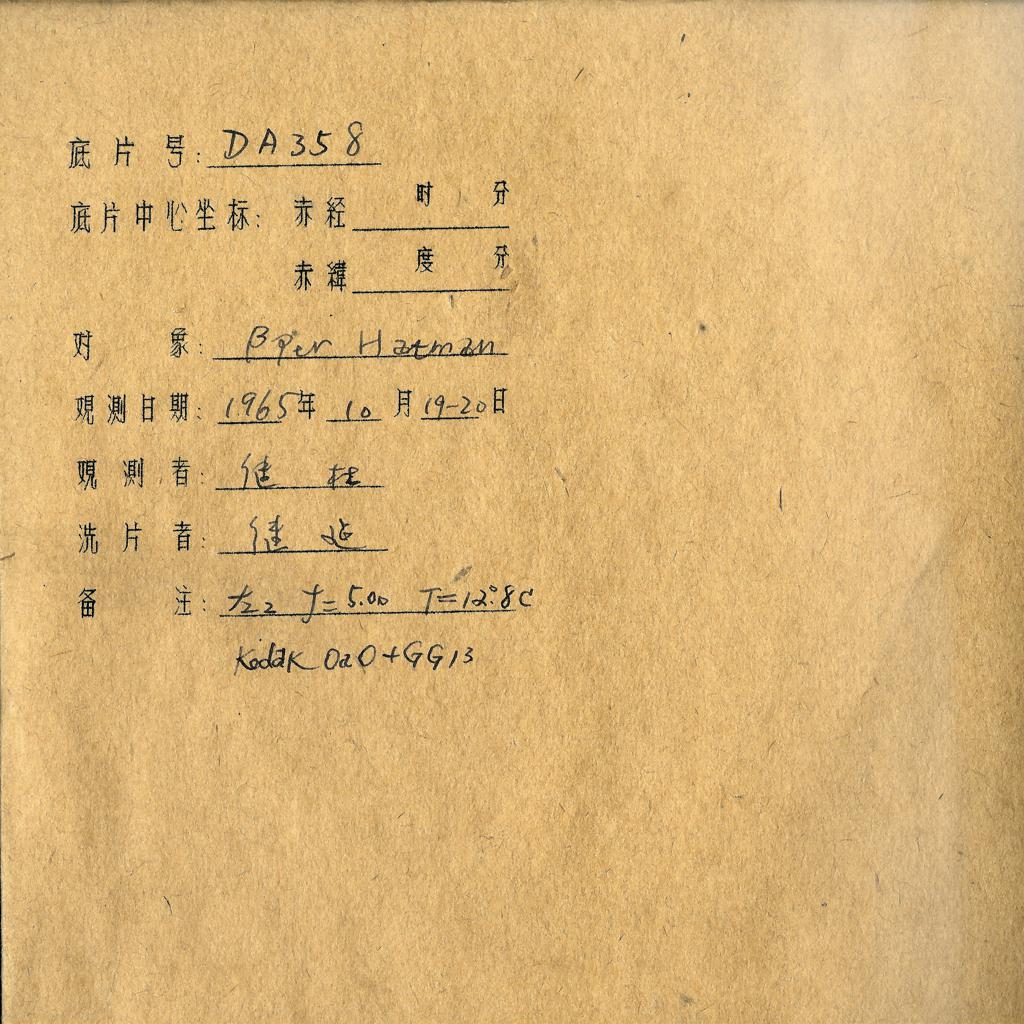 底片号: DA358
时 分
底片中心坐标: 赤经
度 分
赤緯
对象: β Per Hartman
观测日期: 1965年 10月 19-20日
观测者:
洗片者:
备注: f=5.00 T=12°.8C
Kodak OaO+GG13